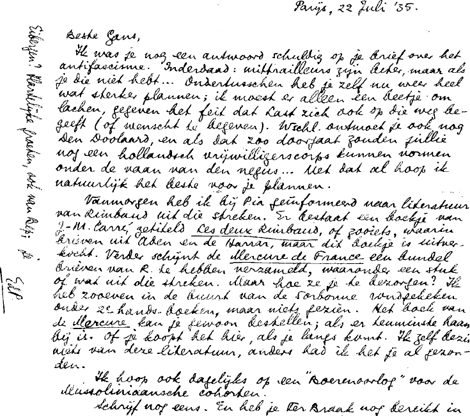 Parijs, 22 Juli '35.
Beste Gans,
Ik was je nog een antwoord schuldig op je brief over het
antifascisme. Inderdaad: mitrailleurs zijn beter, maar als
je die niet hebt... Ondertusschen heb je zelf nu weer heel
wat sterker plannen; ik moest er alleen een beetje om
lachen, gegeven het feit dat Last zich ook op die weg be-
geeft (of wenscht te begeven). Wellicht ontmoet je ook nog
Den Doolaard, en als dat zoo doorgaat zouden jullie
nog een hollandsch vrijwilligerscorps kunnen vormen
onder de vaan van den negus... Met dat al hoop ik
natuurlijk het beste voor je plannen.
Vanmorgen heb ik bij Pia geïnformeerd naar literatuur
van Rimbaud uit die streken. Er bestaat een boekje van
J-M. Carré, getiteld Les deux Rimbaud, of zooiets, waarin
brieven uit Aden en de Harrar, maar dit boekje is uitver-
kocht. Verder schijnt de Mercure de France een bundel
brieven van R. te hebben verzameld, waaronder een stuk
of wat uit die streken. Maar hoe ze je te bezorgen? Ik
heb zooeven in de buurt van de Sorbonne rondgekeken
onder 2e hands-boeken, maar niets gezien. Het boek van
de Mercure kan je gewoon bestellen; als er tenminste haast
bij is. Of je koopt het hier, als je langs komt. Ik zelf bezit
niets van deze literatuur, anders had ik het je al gezon-
den.
Ik hoop ook dagelijks op een "Boerenoorlog" voor de
Mussoliniaansche cohorten.
Schrijf nog eens. En heb je Ter Braak nog bereikt in
Eibergen? Hartelijke groeten, ook van Bep, je
EdP